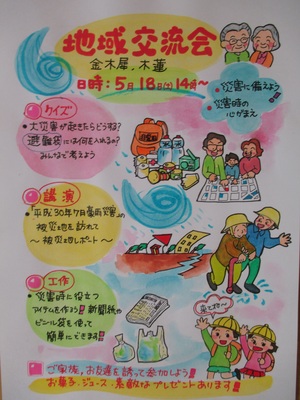 地域交流会
金木犀、木蓮
日時:5月18日(土)14時〜
・災害に備えよう
・災害時の
心がまえ
クイズ
・大災害が起きたらどうする?
避難袋には何を入れるの?
みんなで考えよう
講演
・「平成30年7月豪雨災害」の
被災地を訪ねて
〜被災地レポート〜
工作
・災害時に役立つ
アイテムを作ろう!!新聞紙や
ビニール袋を使って
簡単にできます!!
来てね〜
ご家族、お友達を誘って参加しよう!
お菓子、ジュース、素敵なプレゼントあります!!